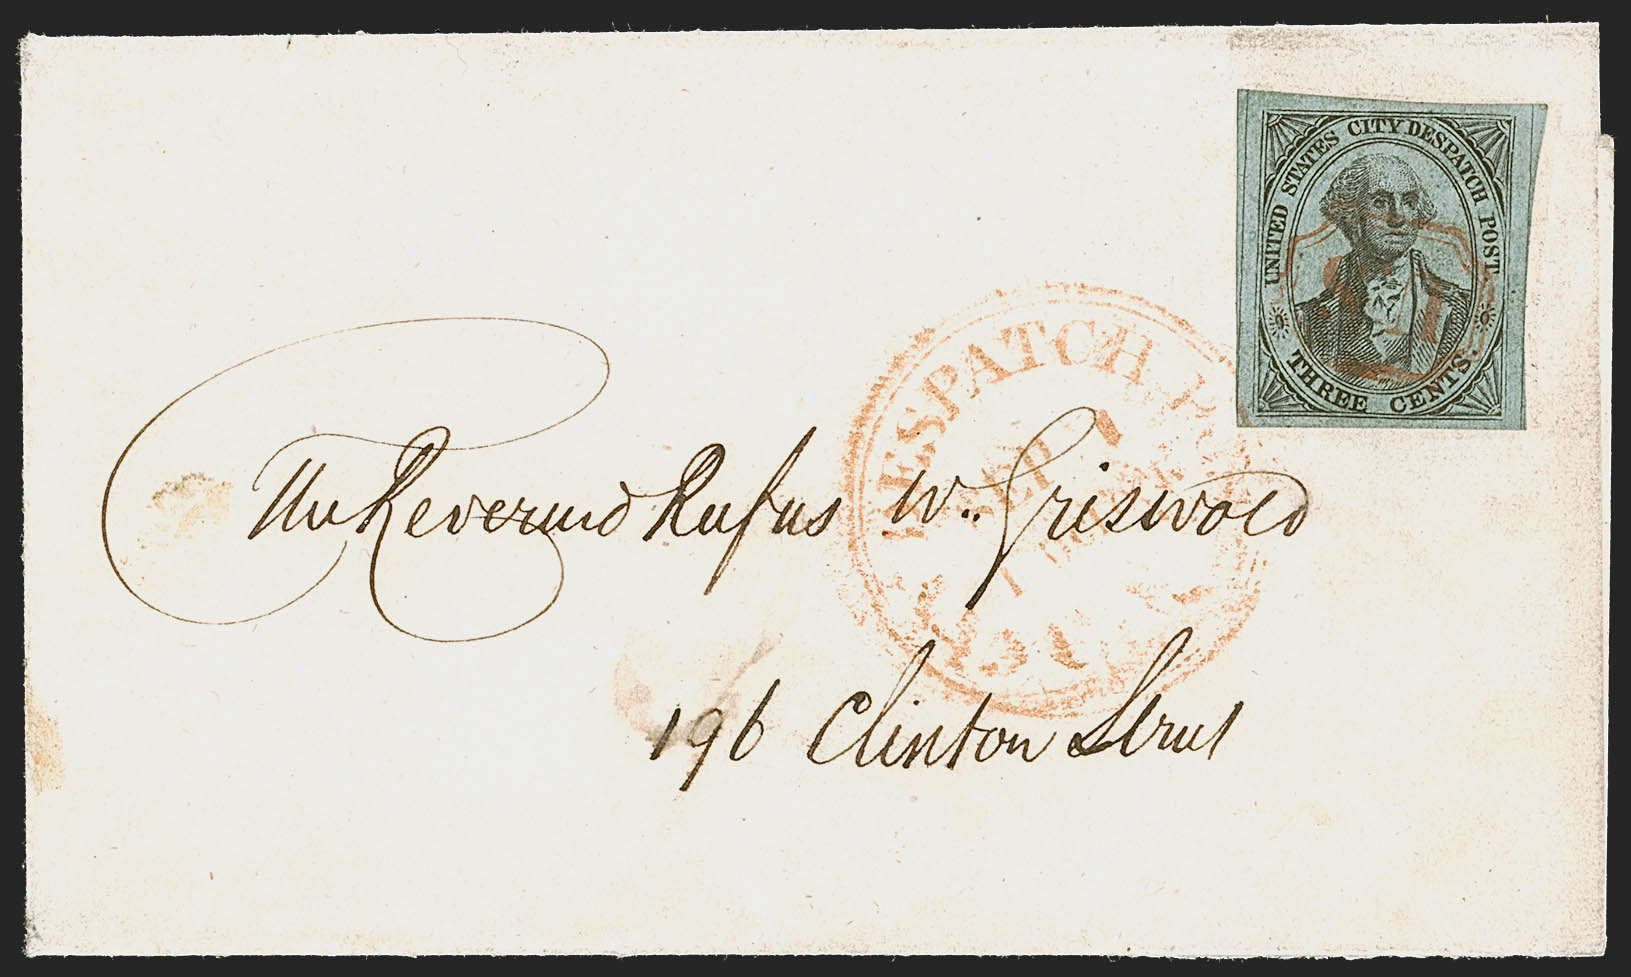 UNITED STATES CITY DESPATCH POST
THREE CENTS.
DESPATCH P
SEP 7
The Reverend Rufus W. Griswold
196 Clinton Street